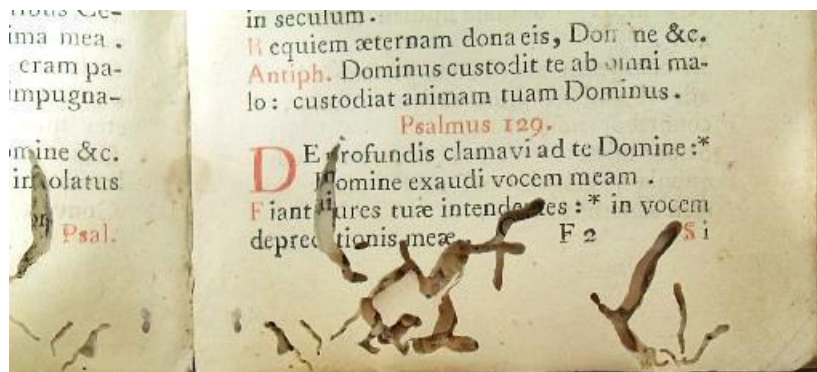 ima mea .
eram pa-
impugna-
&c.
olatus
Psal.
in seculum .
Requiem æternam dona eis, &c.
Antiph. Dominus custodit te ab omni ma-
lo : custodiat animam tuam Dominus .
Psalmus 129.
DE profundis clamavi ad te Domine :*
Domine exaudi vocem meam .
Fiant aures tuæ intendentes : * in vocem
deprecationis meæ
F 2
Si